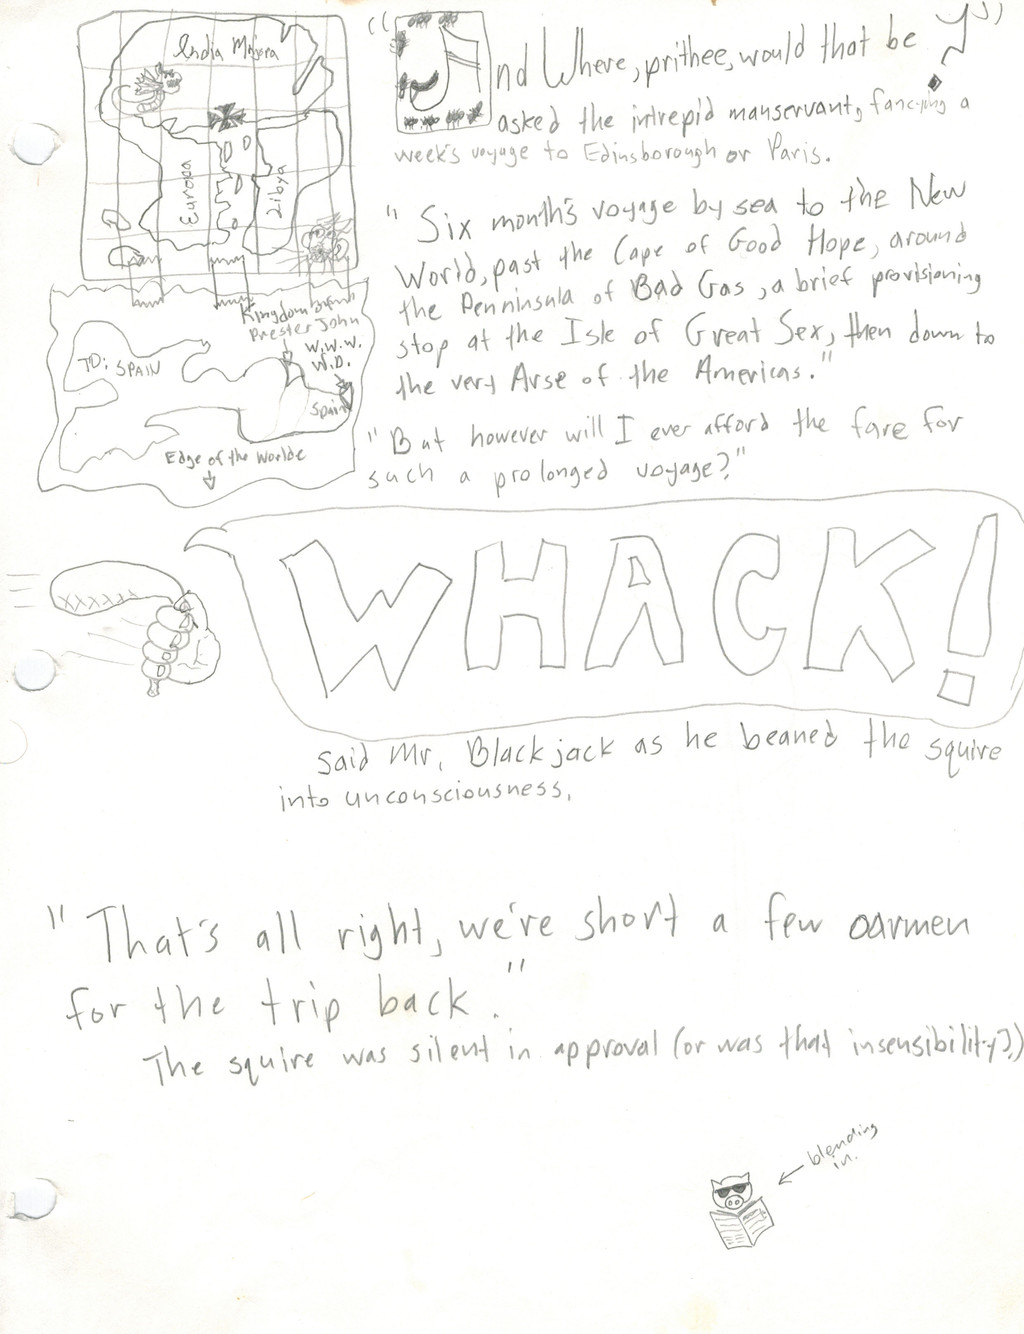 India Majora
Europa
Libya
Kingdom of
Prester John
W.W.W.
W.D.
TO: SPAIN
Spain
Edge of the Worlde
"And Where, prithee, would that be?"
asked the intrepid manservant, fancying a
week's voyage to Edinsborough or Paris.
"Six month's voyage by sea to the New
World, past the Cape of Good Hope, around
the Penninsula of Bad Gas, a brief provisioning
stop at the Isle of Great Sex, then down to
the very Arse of the Americas."
"But however will I ever afford the fare for
such a prolonged voyage?"
WHACK!
said Mr. Blackjack as he beaned the squire
into unconsciousness.
"That's all right, we're short a few oarmen
for the trip back."
The squire was silent in approval (or was that insensibility?)
blending
in.